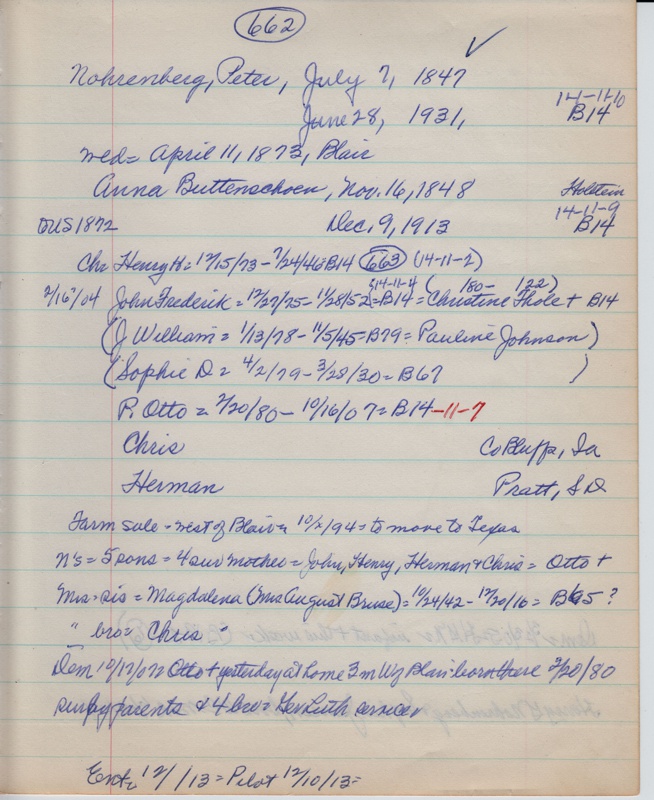 662
Nohrenberg, Peter, July 7, 1847
June 28, 1931, 14-11-10 B14
wed= April 11, 1873, Blair
Anna Buttenschoen, Nov. 16, 1848 Holstein
OUS 1872 Dec. 9, 1913 14-11-9 B14
Ch= Henry H= 12/15/73 - 7/24/46=B14 663 (14-11-2)
2/16/04 John Frederick = 12/27/75 - 11/28/52=B14 = Christine Thole + B14
14-11-4 (180- 122)
(J William = 1/13/78 - 11/5/45=B79= Pauline Johnson)
(Sophie D = 4/2/79 - 3/28/30 = B67 )
P. Otto = 2/20/80 - 10/16/07= B14-11-7
Chris Co Bluffs, Ia
Herman Pratt, S D
Farm sale = west of Blair = 10/2/94 = to move to Texas
N's = 5 sons = 4 sur mother = John, Henry, Herman & Chris = Otto +
Mrs = sis = Magdalena (Mrs August Bruse) = 10/24/42 - 12/30/16 = B65 ?
" bro = Chris "
Dem 10/17/07 Otto + yesterday at home 3 m W of Blair born there 2/20/80
sur by parents & 4 bro = Ger Luth service
Ent= 12/ /13 = Pilot 12/10/13=